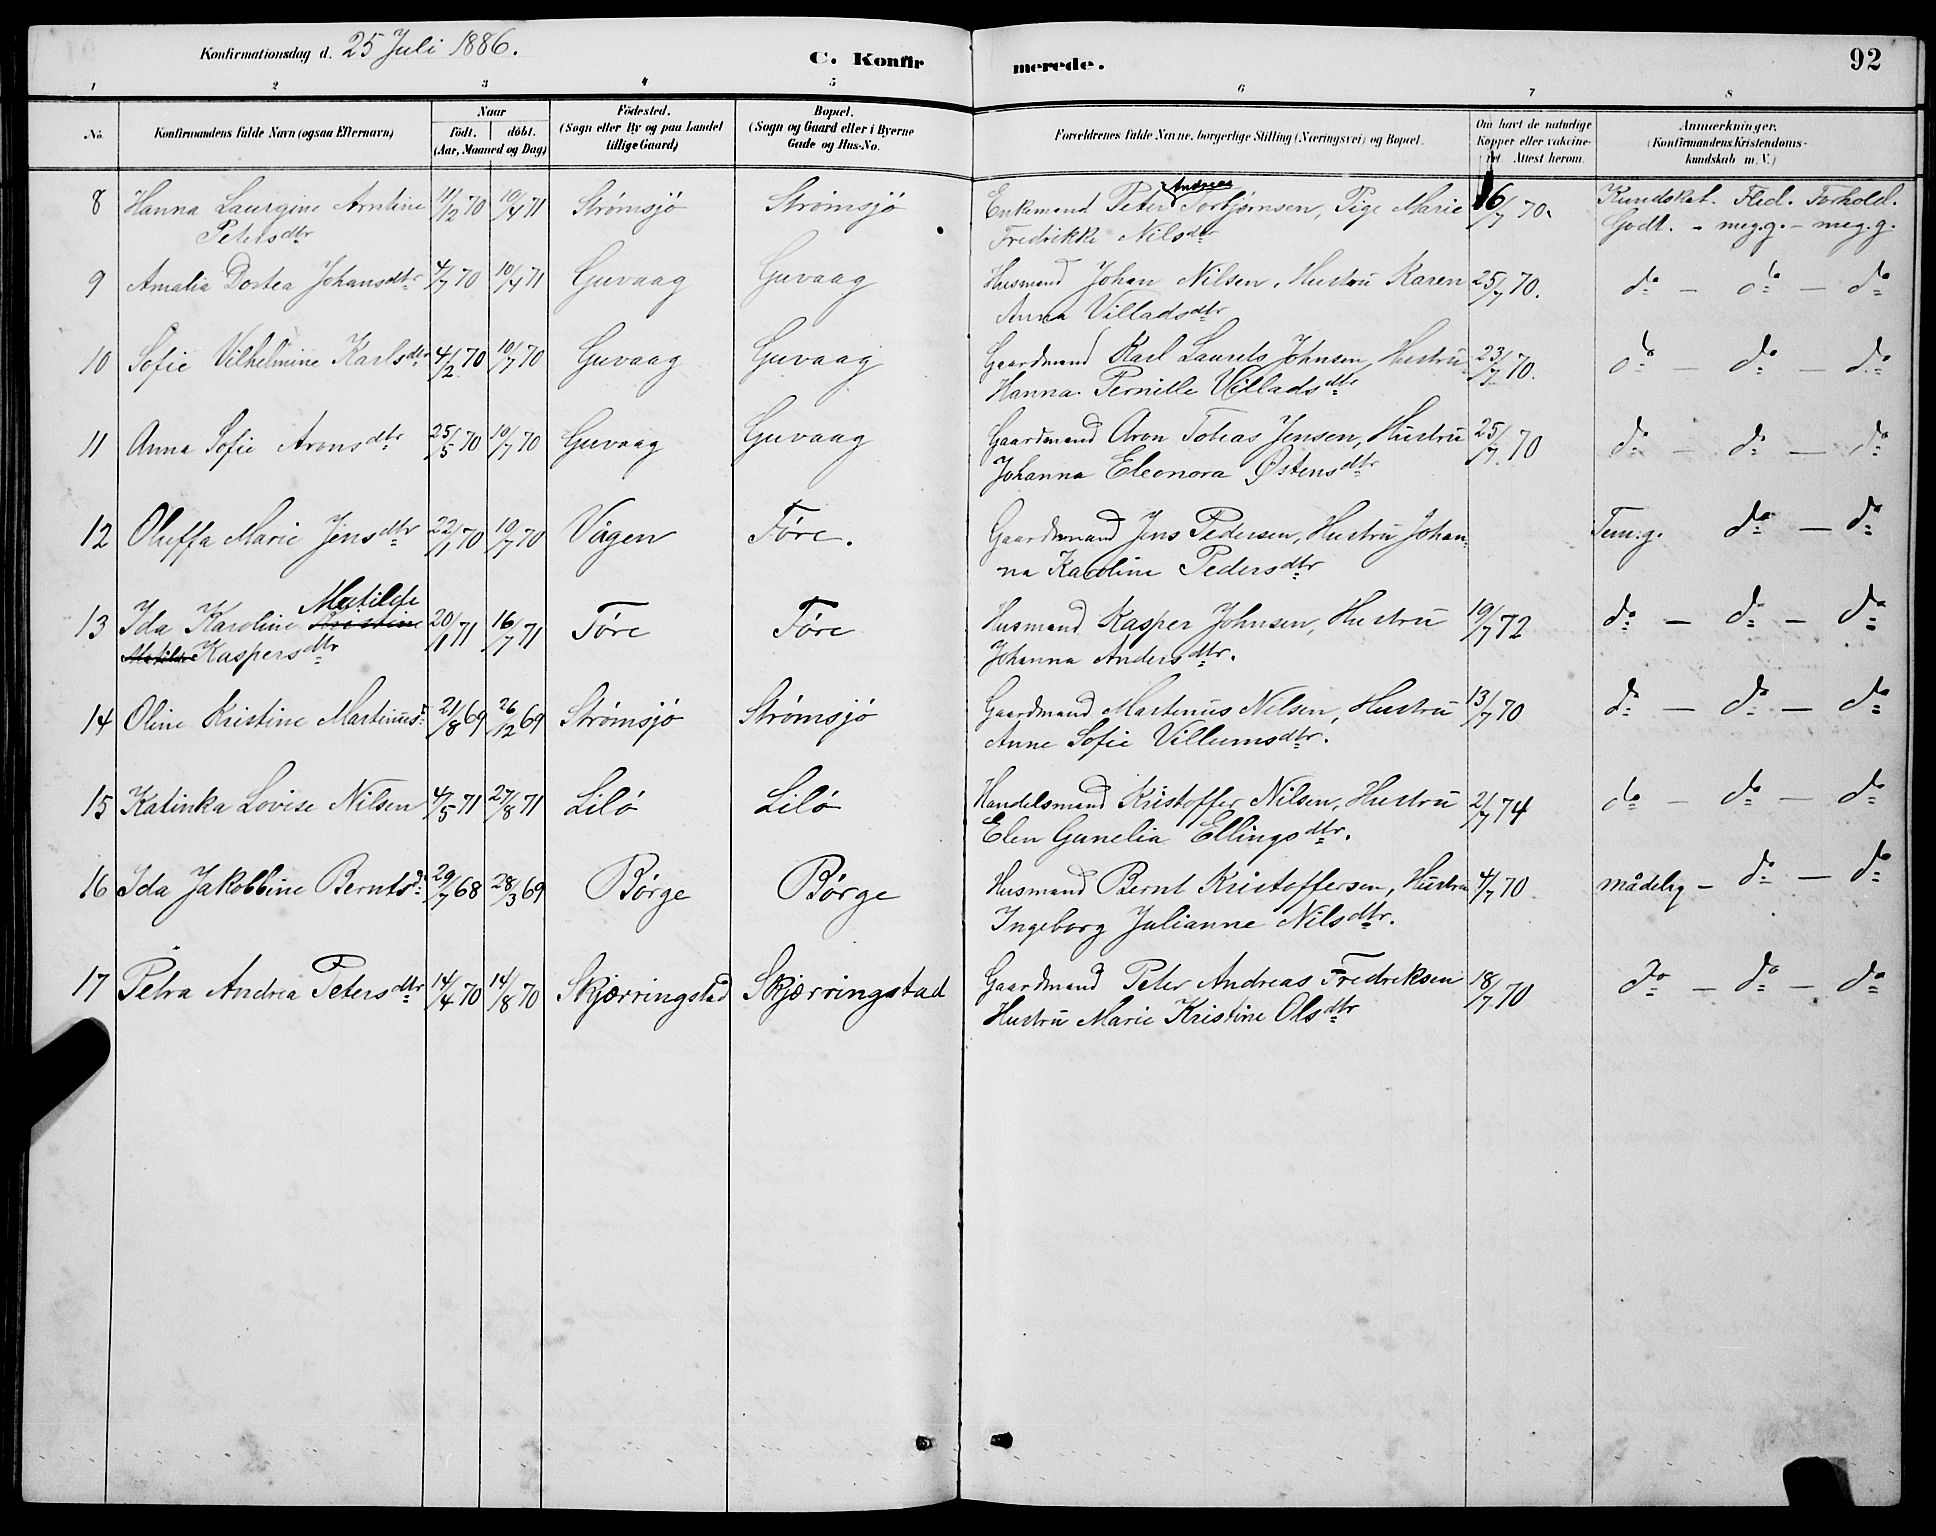 Konfirmationsdag d. 25 Juli 1886.
C. Konfirmerede.
92
1 2 3 4 5 6 7 8
No.
Konfirmandens fulde Navn (ogsaa Efternavn)
Naar
født. døbt.
(Aar, Maaned og Dag)
Fødested.
(Sogn eller By og paa Landet
tillige Gaard)
Bopæl.
(Sogn og Gaard eller i Byerne
Gade og Hus-No.
Forældrenes fulde Navne, borgerlige Stilling (Næringsvei) og Bopæl.
Om havt de naturlige
Kopper eller vakcine-
ret. Attest herom.
Anmærkninger.
(Konfirmandens Kristendoms-
kundskab m. V.)
Andreas
8 Hanna Laurgine Arntine 11/12 70 10/4 71 Strømsjø Strømsjø Enkemand Peter Torbjørnsen, Pige Marie 16/7 70. Kundskab. Flid. Forhold.
Petersdtr Fredrikke Nilsdtr Godt. - meg.g. - meg.g.
9 Amalia Dortea Johansdtr 4/7 70 10/4 71 Guvaag Guvaag Husmand Johan Nilsen, Hustru Karen 25/7 70. do - do - do
Anna Villadsdtr
10 Sofie Vilhelmine Karlsdtr 4/2 70 10/7 70 Guvaag Guvaag Gaardmand Karl Laurits Johnsen, Hustru 23/7 70. do - do - do
Hanna Pernille Villadsdtr
11 Anna Sofie Aronsdtr 25/5 70 10/7 70 Guvaag Guvaag Gaardmand Aron Tobias Jensen, Hustru 25/7 70 do - do - do
Johanna Eleonora Østensdtr
12 Oluffa Marie Jensdtr 22/1 70 10/7 70 Vågen Føre. Gaardmand Jens Pedersen, Hustru Johan- Tem.g. do - do
na Karoline Pedersdtr
Matilde
13 Ida Karoline Kristine 20/1 71 16/7 71 Føre Føre Husmand Kasper Johnsen, Hustru 19/7 72 do - do - do
Matilde Kaspersdtr Johanna Andersdtr.
14 Oline Kristine Martinusd 21/8 69 26/12 69 Strømsjø Strømsjø Gaardmand Martinus Nilsen, Hustru 13/7 70 do - do - do
Anne Sofie Villumsdtr.
15 Katinka Lovise Nilsen 4/5 71 27/8 71 Lilø Lilø Handelsmand Kristoffer Nilsen, Hustru 2/7 74 do - do - do
Elen Gunelia Ellingsdtr.
16 Ida Jakobbine Berntsd 29/7 68 28/3 69 Børge Børge Husmand Bernt Kristoffersen, Hustru 4/7 70 mådelig - do - do
Ingeborg Julianne Nilsdtr.
17 Petra Andrea Petersdtr 14/4 70 14/8 70 Skjærringstad Skjærringstad Gaardmand Peter Andreas Fredriksen 18/7 70 do - do - do
Hustru Marie Kristine Olsdtr